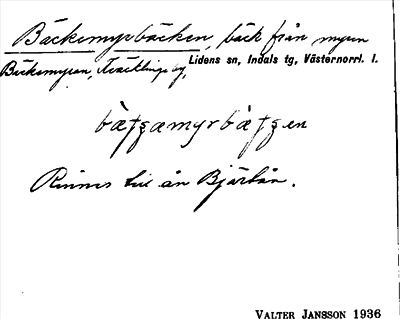 Bäckemyrbäcken, bäck från myren
Bäckemyren, Kväcklinge by, Lidens sn, Indals tg, Västernorrl. l.
Rinner till ån Bjärtån.
VALTER JANSSON 1936